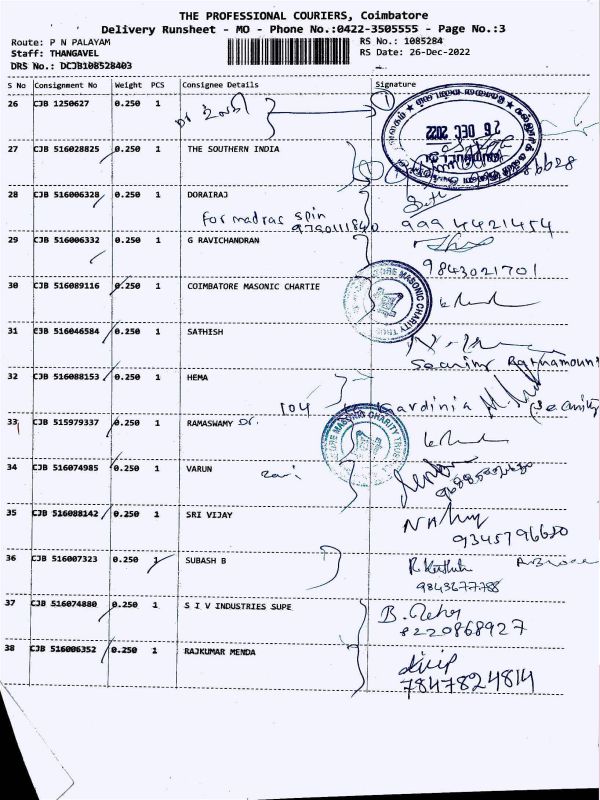 THE PROFESSIONAL COURIERS, Coimbatore
Delivery Runsheet - MO - Phone No.:0422-3505555 - Page No.:3
Route: P N PALAYAM
Staff: THANGAVEL
DRS No.: DCJB108528403
RS No.: 1085284
RS Date: 26-Dec-2022
S No Consignment No Weight PCS Consignee Details Signature
26 CJB 1250627 0.250 1
26 DEC 2022
27 CJB 516028825 0.250 1 THE SOUTHERN INDIA
28 CJB 516006328 0.250 1 DORAIRAJ
For madras spin
9790111840 9994421454
29 CJB 516006332 0.250 1 G RAVICHANDRAN
9843021701
30 CJB 516089116 0.250 1 COIMBATORE MASONIC CHARTIE
COIMBATORE MASONIC CHARITY TRUST
31 CJB 516046584 0.250 1 SATHISH
32 CJB 516088153 0.250 1 HEMA
104 Gardinia
33 CJB 515979337 0.250 1 RAMASWAMY Dr.
COIMBATORE MASONIC CHARITY TRUST
34 CJB 516074985 0.250 1 VARUN
35 CJB 516088142 0.250 1 SRI VIJAY
9345796680
36 CJB 516007323 0.250 1 SUBASH B
9843677788
37 CJB 516074880 0.250 1 S I V INDUSTRIES SUPE
8220868927
38 CJB 516006352 0.250 1 RAJKUMAR MENDA
7847824814